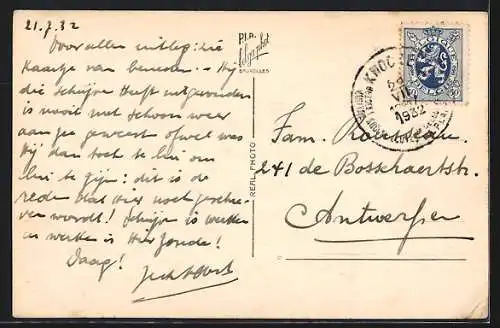 21.7.32
Voor allen uitleg: zie
Kaartje van beneden. - Hij
die schrijven heeft uitgevonden
is nooit met schoon weer
aan zee geweest ofwel was
hij dan toch te lui om
lui te zijn: dit is de
reden dat hier niet geschre-
ven wordt! Schrijven is werken
en werken is hier zonde!
Daag!
P.I.B.
BRUXELLES
REAL PHOTO
KNOC
VII
1932
Fam.
241 de Bosschaertstr.
Antwerpen